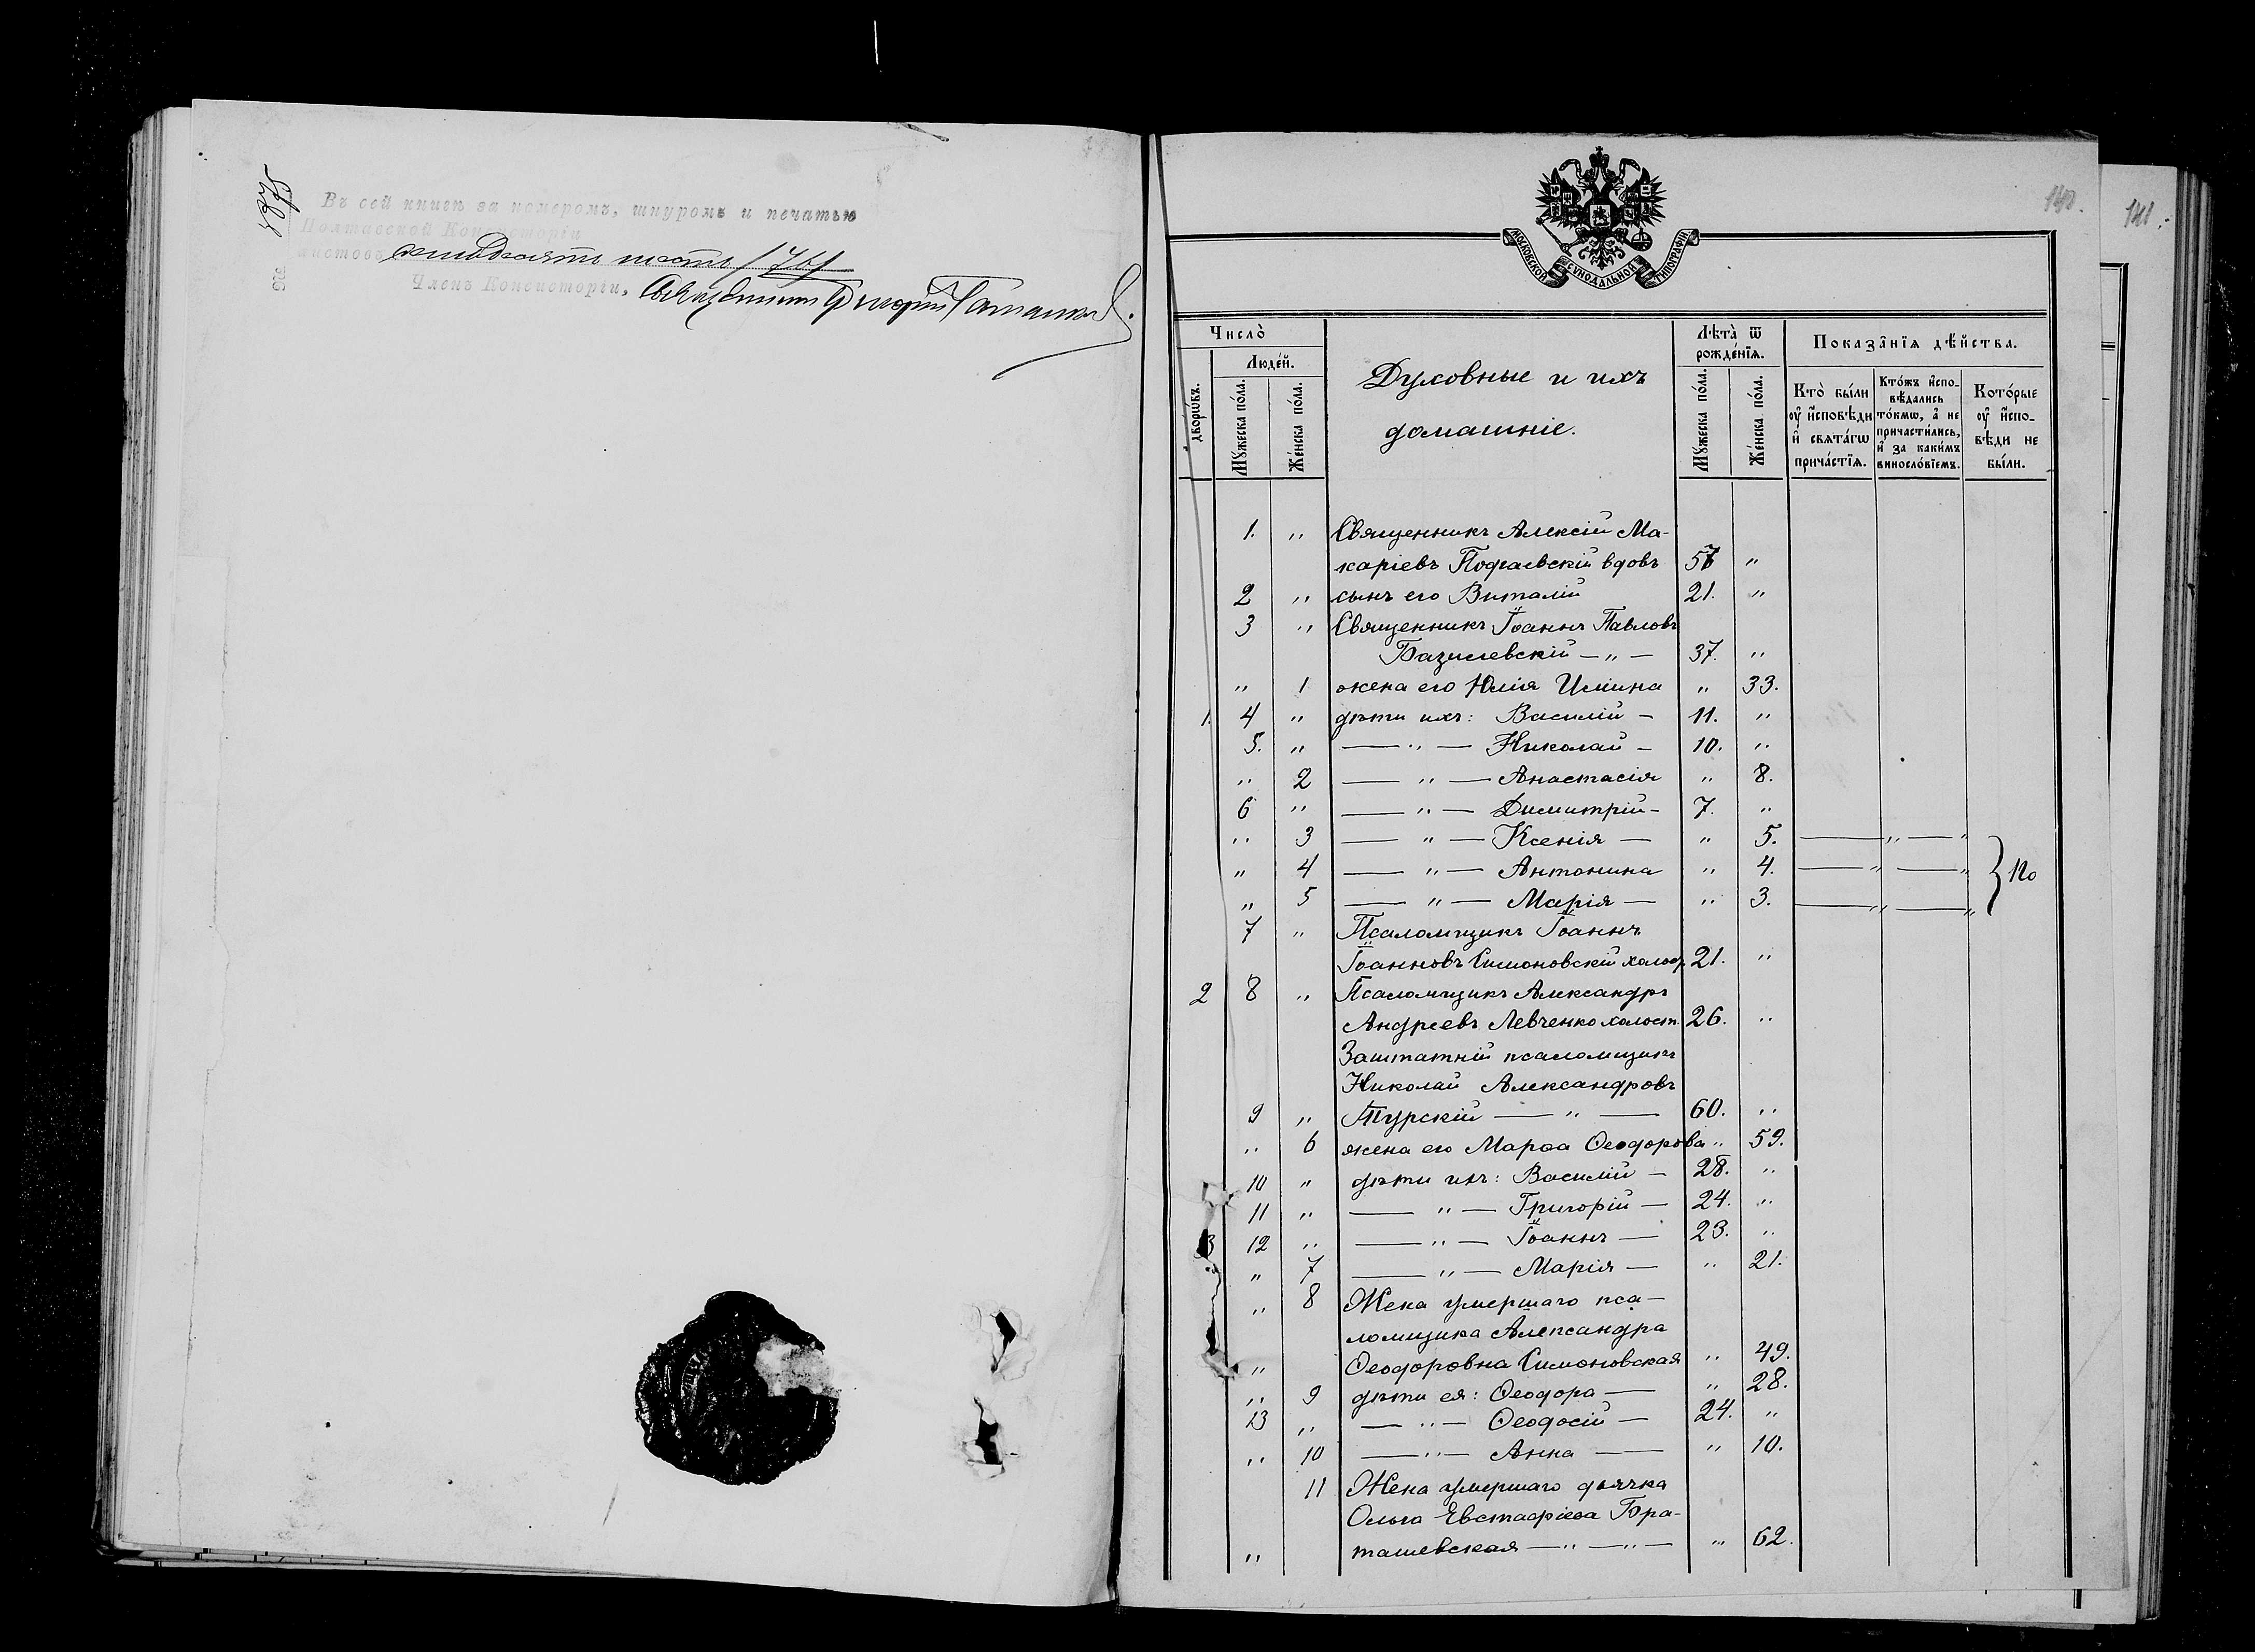 1895
Въ сей книгѣ за номеромъ, шнуромъ и печатью
Полтавской Консисторіи
листовъ семьдесятъ шесть /76/
Членъ Консисторіи, Священникъ
140.
141.
МОСКОВСКОЙ СѴНОДАЛЬНОЙ ТИПОГРАФІИ.
Число̀
Людéй.
двορώвъ.
Мꙋ́жеска пóла.
Жéнска пóла.
Духовные и ихъ
домашніе.
Лѣта̀ ѿ
рождéнїѧ.
Мꙋ́жеска пóла.
Жéнска пóла.
Показа̂нїѧ дѣ́йства.
Кто̀ бы́ли ᲂу҆ и҆сповѣди и҆ свѧта́гѡ прича́стїѧ.
Кто́жъ и҆спо-вѣдались то́кмѡ, а҆ не причасти́лись, и҆ за каки́мъ винослóвїемъ.
Котóрые ᲂу҆ и҆спо-вѣди не бы́ли.
1. " Священникъ Алексій Ма-
каріевъ Подгаевскій вдовъ 57 "
2 " сынъ его Виталій 21. "
3 " Священникъ Іоаннъ Павловъ
Базилевскій — " — 37. "
" 1 жена его Юлія Иліина " 33.
1. 4 " дѣти ихъ: Василій — 11. "
5. " — " — Николай — 10. "
" 2 — " — Анастасія " 8.
6 " — " — Димитрій — 7. "
" 3 — " — Ксенія — " 5. — " — "
" 4 — " — Антонина " 4. — " — " } по
" 5 — " — Марія — " 3. — " — "
7 " Псаломщикъ Іоаннъ
Іоанновъ Симоновскій холост. 21. "
2 8 " Псаломщикъ Александръ
Андреевъ Левченко холост. 26. "
Заштатній псаломщикъ
Николай Александровъ
9 " Турскій — " — 60. "
" 6 жена его Марѳа Ѳеодорова " 59.
10 " дѣти ихъ: Василій — 28. "
11 " — " — Григорій — 24. "
3 12 " — " — Іоаннъ — 23. "
" 7 — " — Марія — " 21.
" 8 Жена умершаго пса-
ломщика Александра
" Ѳеодоровна Симоновская " 49.
" 9 дѣти ея: Ѳеодора — " 28.
13 " — " — Ѳеодосій — 24. "
" 10 — " — Анна — " 10.
11 Жена умершаго дьячка
Ольга Евстафіева Бра-
" ташевская — " — " — " 62.